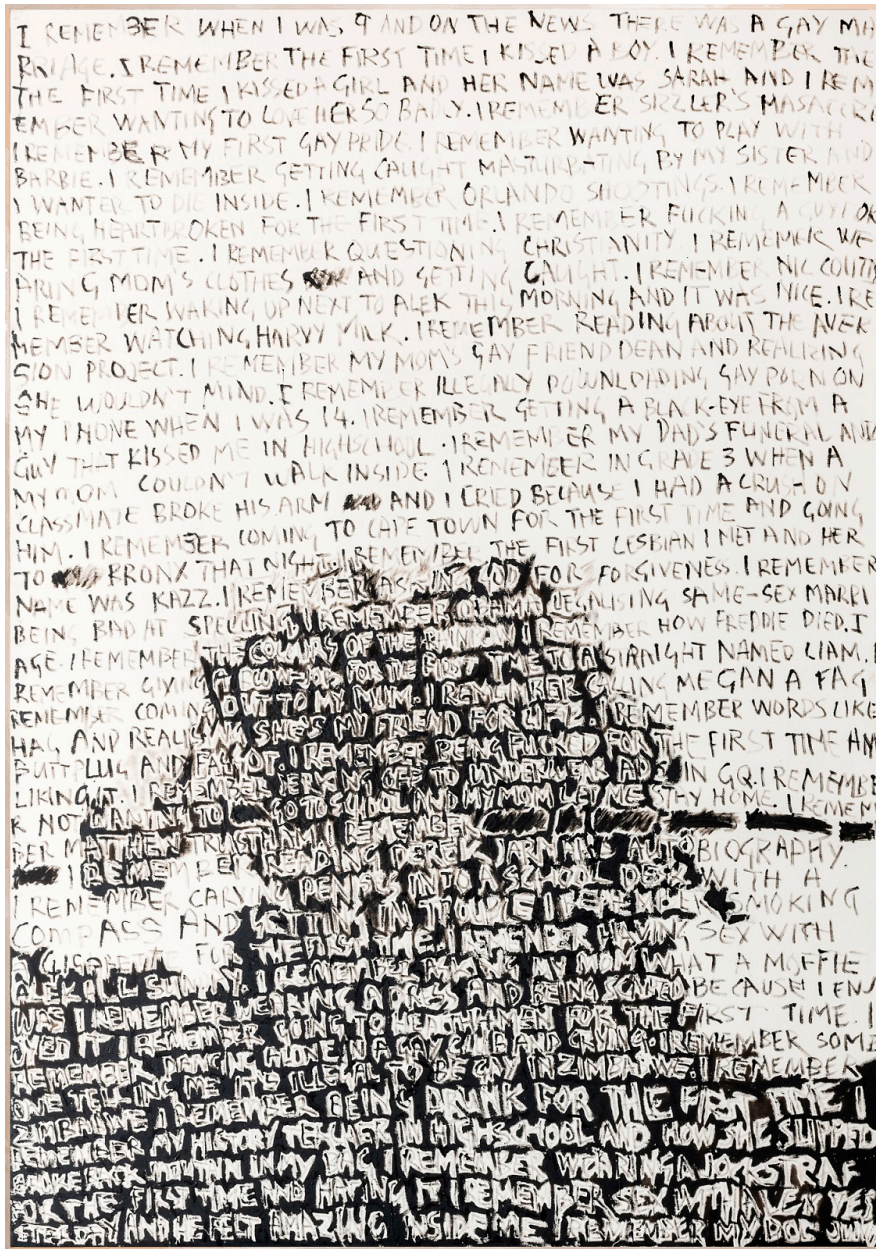 I REMEMBER WHEN I WAS 9 AND ON THE NEWS THERE WAS A GAY MA
RRIAGE. I REMEMBER THE FIRST TIME I KISSED A BOY. I REMEMBER THE
THE FIRST TIME I KISSED A GIRL AND HER NAME WAS SARAH AND I REM
EMBER WANTING TO LOVE HER SO BADLY. I REMEMBER SIZZLER'S MASACCR
I REMEMBER MY FIRST GAY PRIDE. I REMEMBER WANTING TO PLAY WITH
BARBIE. I REMEMBER GETTING CAUGHT MASTURBATING BY MY SISTER AND
I WANTED TO DIE INSIDE. I REMEMBER ORLANDO SHOOTINGS. I REMEMBER
BEING HEARTBROKEN FOR THE FIRST TIME. I REMEMBER FUCKING A GUY
THE FIRST TIME. I REMEMBER QUESTIONING CHRISTIANITY. I REMEMBER WE
ARING MOM'S CLOTHES AND GETTING CAUGHT. I REMEMBER
I REMEMBER WAKING UP NEXT TO ALEX THIS MORNING AND IT WAS NICE. I RE
MEMBER WATCHING HARVY MILK. I REMEMBER READING ABOUT THE AVER
SION PROJECT. I REMEMBER MY MOM'S GAY FRIEND DEAN AND REALIZING
SHE WOULDN'T MIND. I REMEMBER ILLEGALLY DOWNLOADING GAY PORN ON
MY IHONE WHEN I WAS 14. I REMEMBER GETTING A BLACK-EYE FROM A
GUY THAT KISSED ME IN HIGHSCHOOL. I REMEMBER MY DAD'S FUNERAL AND
MY MOM COULDN'T WALK INSIDE. I REMEMBER IN GRADE 3 WHEN A
CLASSMATE BROKE HIS ARM AND I CRIED BECAUSE I HAD A CRUSH ON
HIM. I REMEMBER COMING TO CAPE TOWN FOR THE FIRST TIME AND GOING
TO BRONX THAT NIGHT. I REMEMBER THE FIRST LESBIAN I MET AND HER
NAME WAS KAZZ. I REMEMBER ASKING GOD FOR FORGIVENESS. I REMEMBER
BEING BAD AT SPELLING. I REMEMBER OBAMA LEGALISING SAME-SEX MARRI
AGE. I REMEMBER THE COLOURS OF THE RAINBOW. I REMEMBER HOW FREDDIE DIED. I
REMEMBER GIVING A BLOWJOB FOR THE FIRST TIME TO A STRAIGHT NAMED LIAM.
REMEMBER COMING OUT TO MY MUM. I REMEMBER CALLING MEGAN A FAG
HAG AND REALISING SHE'S MY FRIEND FOR LIFE. I REMEMBER WORDS LIKE
BUTTPLUG AND FAGGOT. I REMEMBER BEING FUCKED FOR THE FIRST TIME AND
LIKING IT. I REMEMBER JERKING OFF TO UNDERWEAR ADS IN GQ. I REMEMBE
R NOT WANTING TO GO TO SCHOOL AND MY MOM LET ME STAY HOME. I REMEM
BER MATTHEW I REMEMBER
I REMEMBER READING DEREK JARMANS AUTOBIOGRAPHY.
I REMEMBER CARVING PENIS INTO A SCHOOL DESK WITH A
COMPASS AND GETTING IN TROUBLE. I REMEMBER SMOKING
A CIGARETTE FOR THE FIRST TIME. I REMEMBER HAVING SEX WITH
ALEX ALL SUNDAY. I REMEMBER ASKING MY MOM WHAT A MOFFIE
WAS. I REMEMBER WEARING A DRESS AND BEING SCARED BECAUSE I ENJ
OYED IT. I REMEMBER GOING TO FOR THE FIRST TIME. I
REMEMBER DANCING ALONE IN A GAY CLUB AND CRYING. I REMEMBER SOME
ONE TELLING ME IT'S ILLEGAL TO BE GAY IN ZIMBABWE. I REMEMBER
ZIMBABWE. I REMEMBER BEING DRUNK FOR THE FIRST TIME. I
REMEMBER MY HISTORY TEACHER IN HIGHSCHOOL AND HOW SHE SLIPPED
BROKEBACK MOUNTAIN IN MY BAG. I REMEMBER WEARING A JOCKSTRAP
FOR THE FIRST TIME AND HATING IT. I REMEMBER SEX WITH YES
TERDAY AND HE FELT AMAZING INSIDE ME. I REMEMBER MY DOG